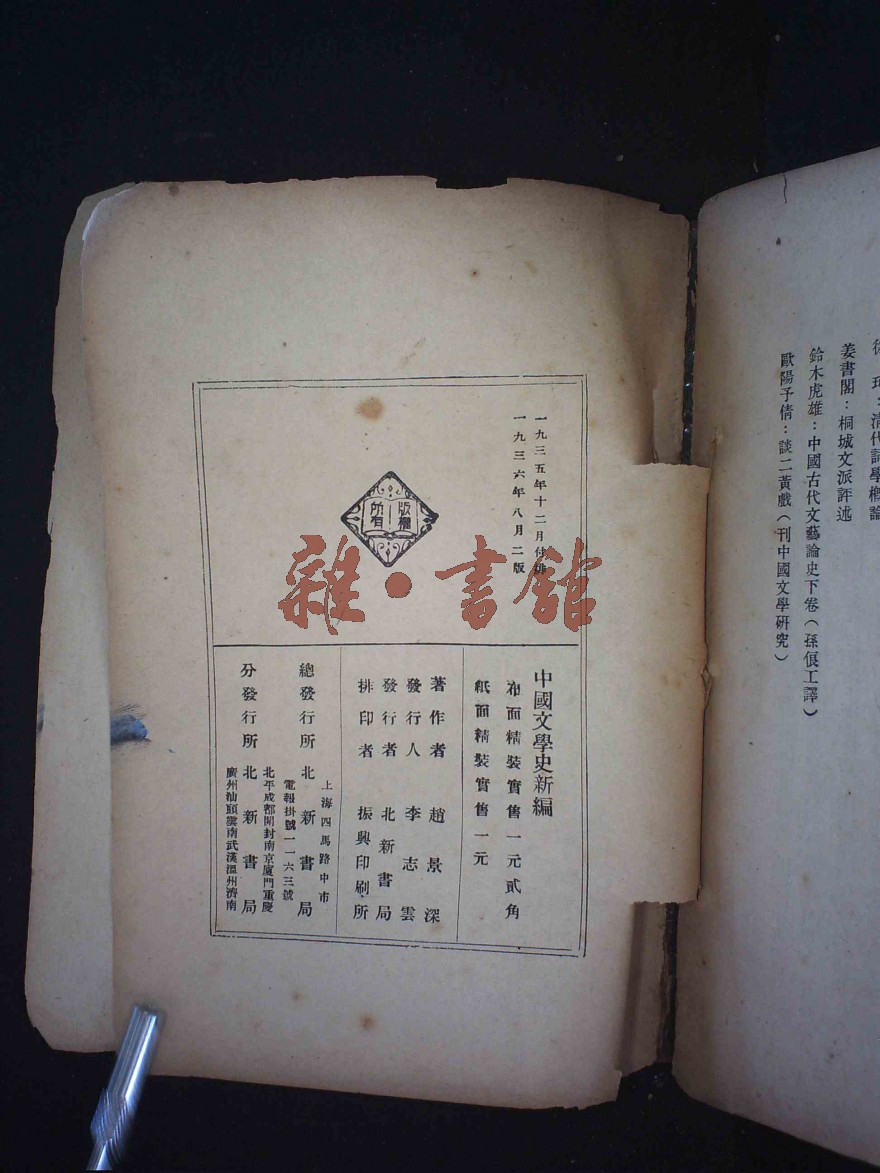 徐 珂：清代詞學概論
姜書閣：桐城文派評述
鈴木虎雄：中國古代文藝論史下卷（孫俍工譯）
歐陽予倩：談二黃戲（刊中國文學研究）
一九三五年十二月付排
一九三六年八月二版
版權
所有
雜·書館
中國文學史新編
布面精裝實售一元貳角
紙面精裝實售一元
著作者 趙景深
發行人 李志雲
發行者 北新書局
排印者 振興印刷所
總發行所 北新書局
上海四馬路中市
電報掛號一一六三號
分發行所 北新書局
北平成都開封南京廈門重慶
廣州汕頭雲南武漢溫州濟南